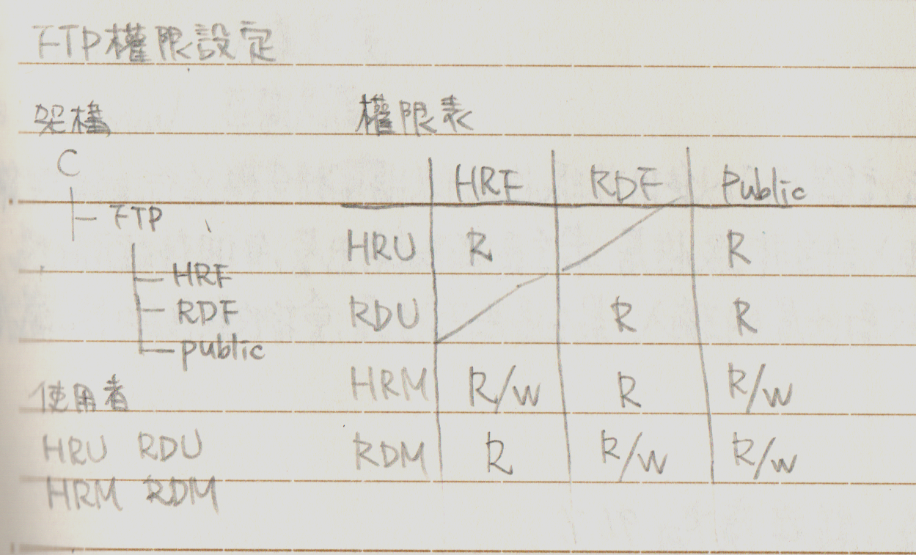 FTP權限設定
架構 權限表
C
FTP
HRF
RDF
public
使用者
HRU RDU
HRM RDM
HRF RDF Public
HRU R R
RDU R R
HRM R/W R R/W
RDM R R/W R/W